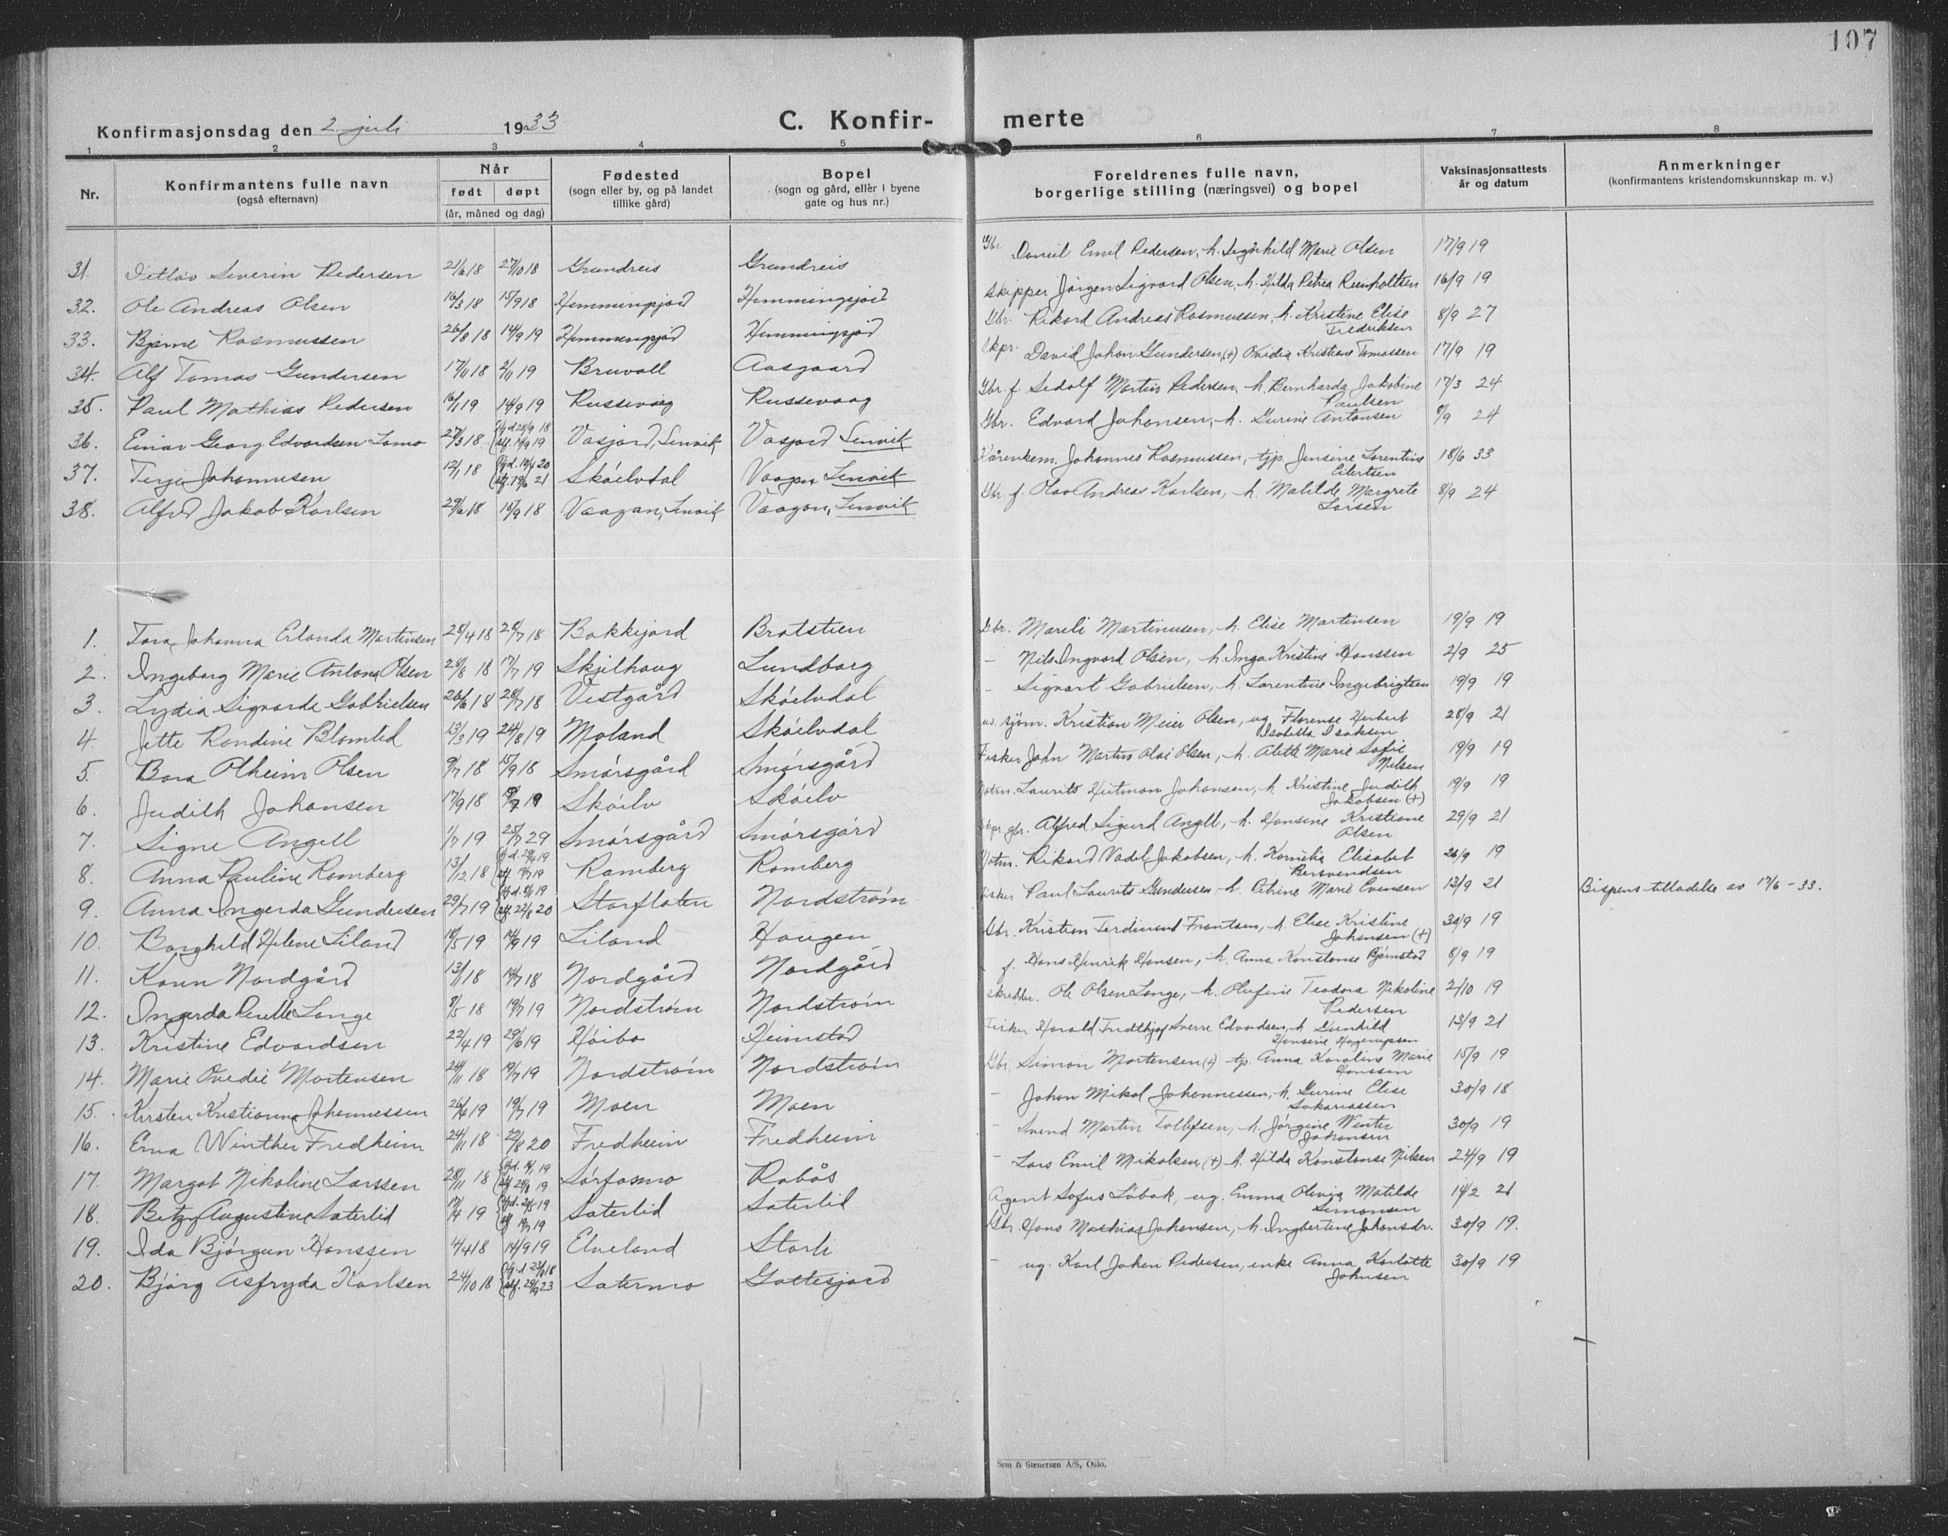 107
Konfirmasjonsdag den 2. juli 1933
C. Konfir- merte
1 2 3 4 5 6 7 8
Nr.
Konfirmantens fulle navn
(også efternavn)
Når
født døpt
(år, måned og dag)
Fødested
(sogn eller by, og på landet
tillike gård)
Bopel
(sogn og gård, eller i byene
gate og hus nr.)
Foreldrenes fulle navn,
borgerlige stilling (næringsvei) og bopel
Vaksinasjonsattests
år og datum
Anmerkninger
(konfirmantens kristendomskunnskap m. v.)
31. Ditlav Severin Pedersen 21/6 18 27/10 18 Grundreis Grundreis Gbr. Daniel Emil Pedersen, h. Signhild Marie Olsen 17/9 19
32. Ole Andreas Olsen 16/3 18 15/9 18 Hemmingsjord Hemmingsjord Skipper Jørgen Sigvard Olsen, h. Hilda Petrea Reinholtsen 16/9 19
33. Bjarne Rasmussen 26/8 18 14/9 19 Hemmingsjord Hemmingsjord Gbr. Rikard Andreas Rasmussen, h. Kristine Elise Fredriksen 8/9 27
34. Alf Tomas Gundersen 17/11 18 2/11 19 Bruvoll Aasgaard Skpr. David Johan Gundersen (+) Ovidia Kristiane Tomassen 17/9 19
35. Paul Mathias Pedersen 16/1 19 14/9 19 Russevåg Russevaag Gbr. f. Sedolf Martin Pedersen, h. Bernharda Jakobine Paulsen 17/3 24
36. Einar Georg Edvardsen Lamo 27/3 18 Hjd. 28/9 18 stf. 14/9 19 Vasjord, Lenvik Vasjord Lenvik Gbr. Edvard Johansen, h. Gurine Antonsen 8/9 24
37. Terje Johannesen 12/7 18 Hjd. 19/4 20 stf. 19/6 21 Skøelvdal Vaagan Lenvik Kårenkem. Johannes Rasmussen, tjp. Jensine Lorentine Eilertsen 18/6 33
38. Alfred Jakob Karlsen 29/6 18 15/9 18 Vaagan, Lenvik Vaagan, Lenvik Gbr. f. Olav Andreas Karlsen, h. Matilde Margrete Larsen 8/9 24
1. Tora Johanna Erlanda Martinsen 28/4 18 28/7 18 Bakkejord Bratstien Gbr. Mareli Martinusen, h. Elise Martinsen 19/9 19
2. Ingeborg Marie Antona Olsen 28/8 18 17/7 19 Skjelhaug Lundberg - Nils Ingvard Olsen, h. Inga Kristine Hanssen 2/9 25
3. Lydia Sigvarda Gabrielsen 26/6 18 28/7 18 Vestgård Skøelvdal - Sigvart Gabrielsen, h. Lorentine Ingebrigtsen 19/9 19
4. Jette Randine Blomlid 13/3 19 24/8 19 Moland Skøelvdal uv. sjøm. Kristian Meier Olsen, ug. Florense Herbert Isaksen 28/9 21
5. Bora Olheim Olsen 9/7 18 15/9 18 Smørsgård Smørsgård Fisker John Martin Olai Olsen, h. Alette Marie Sofie Nilsen 19/9 19
6. Judith Johansen 17/9 18 19 Skøelv Skøelv Laurits Heitman Johansen, h. Kristine Judith Jakobsen (+) 19/9 19
7. Signe Angell 1/7 19 25/7 29 Smørsgård Smørsgård Skpr. gbr. Alfred Sigurd Angell, h. Hansine Kristiane Olsen 29/9 21
8. Anna Pauline Ramberg 13/12 18 Ramberg Ramberg Rikard Vadel Jakobsen, h. Kornelia Elisabet Bersvendsen 26/9 19
9. Anna Ingerda Gundersen 29/7 19 stf. 22/8 20 Storfloten Nordstrøm Fisker Paul Laurits Gundersen h. Petrine Marie Evensen 12/9 21 Bispens tilladelse av 17/6 - 33.
10. Borghild Helene Liland 18/5 19 14/9 19 Liland Haugen Gbr. Kristian Ferdinand Frantsen, h. Elise Kristine Johansen (+) 30/9 19
11. Karin Nordgård 13/1 18 14/7 18 Nordgård Nordgård - f. Hans Henrik Hansen, h. Anna Konstanse Bjørnstad 8/9 19
12. Ingerda Perelle Lange 8/5 18 19/7 19 Nordstrøm Nordstrøm Skredder. Ole Olsen Lange, h. Olufine Teodora Nikoline Pedersen 2/10 19
13. Kristine Edvardsen 22/4 19 29/6 19 Høibo Heimstad Fisker Harald Fredthjof Sverre Edvardsen, h. Gunhild Hansine Hagerupsen 13/9 21
14. Marie Ovedie Mortensen 24/11 18 19/7 19 Nordstrøm Nordstrøm Gbr. Simon Mortensen (+) tp. Anna Karoline Marie Hanssen 15/9 19
15. Kirsten Kristianna Johannessen 26/4 19 19/7 19 Moen Moen - Johan Mikal Johannessen, h. Gurine Elise Sakariassen 30/9 18
16. Erna Winther Fredheim 24/11 18 22/8 20 Fredheim Fredheim - Svend Martin Tollefsen, h. Jørgine Winter Johansen 30/9 19
17. Margot Nikoline Larssen 28/11 18 Sørfosmo Rabås - Lars Emil Mikalsen (+) h. Hilda Konstanse Nilsen 24/9 19
18. Betzy Augustine Saterlid 17/4 19 Saterlid Saterlid Agent Sofus Løbak, ug. Emma Olivia Matilde Simonsen 14/2 21
19. Ida Bjørgun Hanssen 4/4 18 14/9 19 Elveland Storli Gbr. Hans Mathias Johansen, h. Ingbertine Johansdr. 30/9 19.
20. Bjørg Asfryda Karlsen 24/10 18 Satermo Gottesjord - ug. Karl Johan Pedersen, enke Anna Karlotte Johnsen 30/9 19
Sem & Stenersen A/S, Oslo.